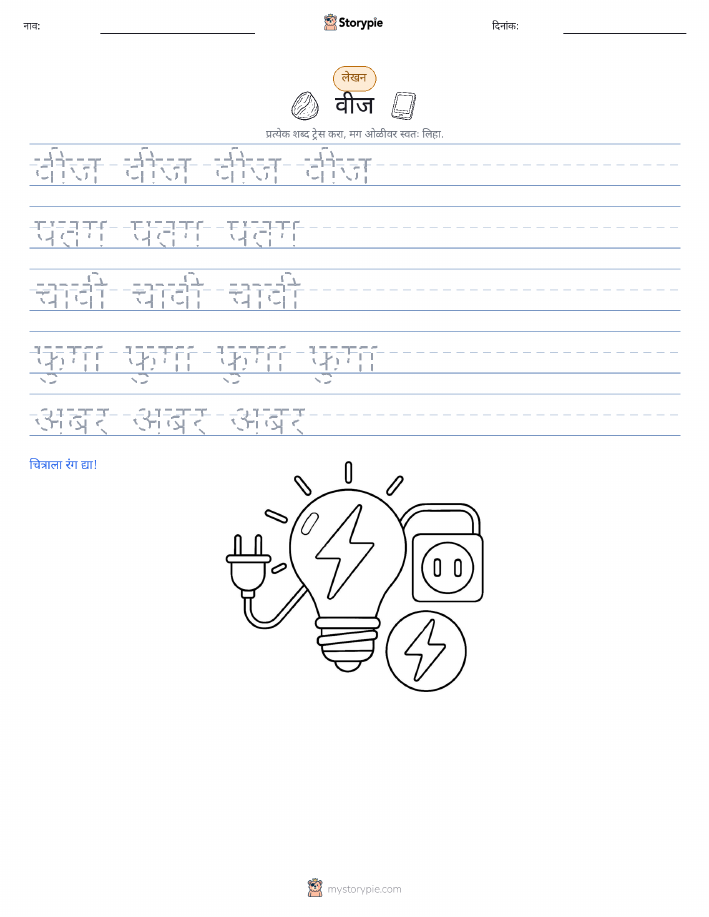 नाव:
Storypie
दिनांक:
लेखन
वीज
प्रत्येक शब्द ट्रेस करा, मग ओळीवर स्वतः लिहा.
वीज वीज वीज वीज
पतग पतग पतग
चावी चावी चावी
फुगा फुगा फुगा फुगा
अबर अबर अबर
चित्राला रंग द्या!
mystorypie.com